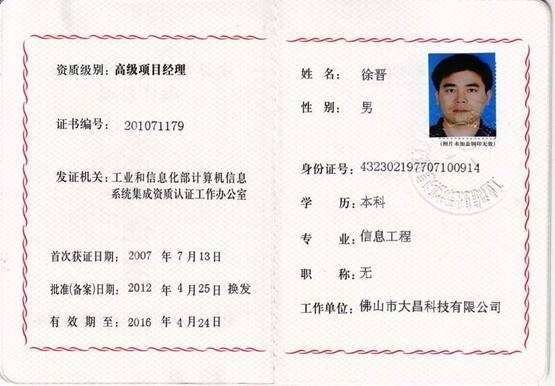 资质级别：高级项目经理
证书编号：201071179
发证机关：工业和信息化部计算机信息
系统集成资质认证工作办公室
首次获证日期：2007 年 7 月 13日
批准(备案)日期：2012 年 4 月 25日 换发
有 效 期 至：2016 年 4 月 24日
姓 名：徐晋
性 别：男
(照片未加盖钢印无效)
身份证号：432302197707100914
学 历：本科
专 业：信息工程
职 称：无
工作单位：佛山市大昌科技有限公司